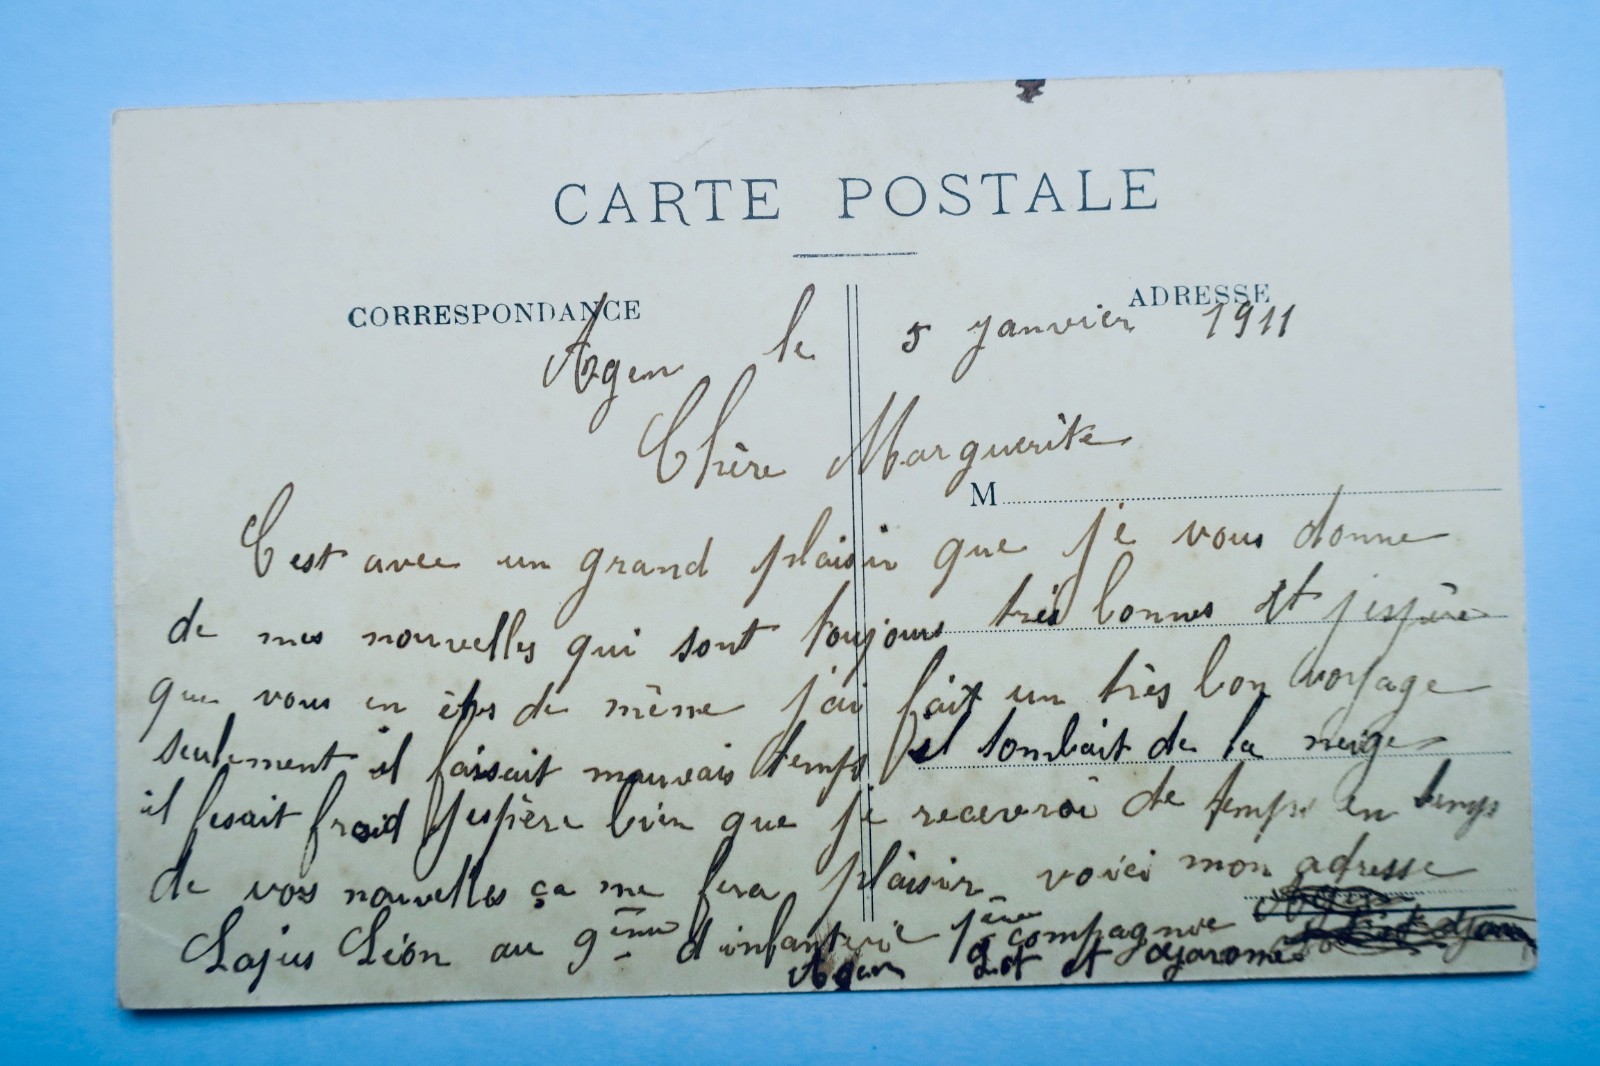 CARTE POSTALE
CORRESPONDANCE
ADRESSE
Agen le 5 janvier 1911
Chère Marguerite
M
C'est avec un grand plaisir que je vous donne
de mes nouvelles qui sont toujours très bonnes et j'espère
que vous en êtes de même j'ai fait un très bon voyage
seulement il faisait mauvais temps il tombait de la neige
il fesait froid j'espère bien que je recevroi de temps en temps
de vos nouvelles ça me fera plaisir voici mon adresse
Lajus Léon au 9ème d'infanterie 1ère compagnie
Agen Lot et Garonne